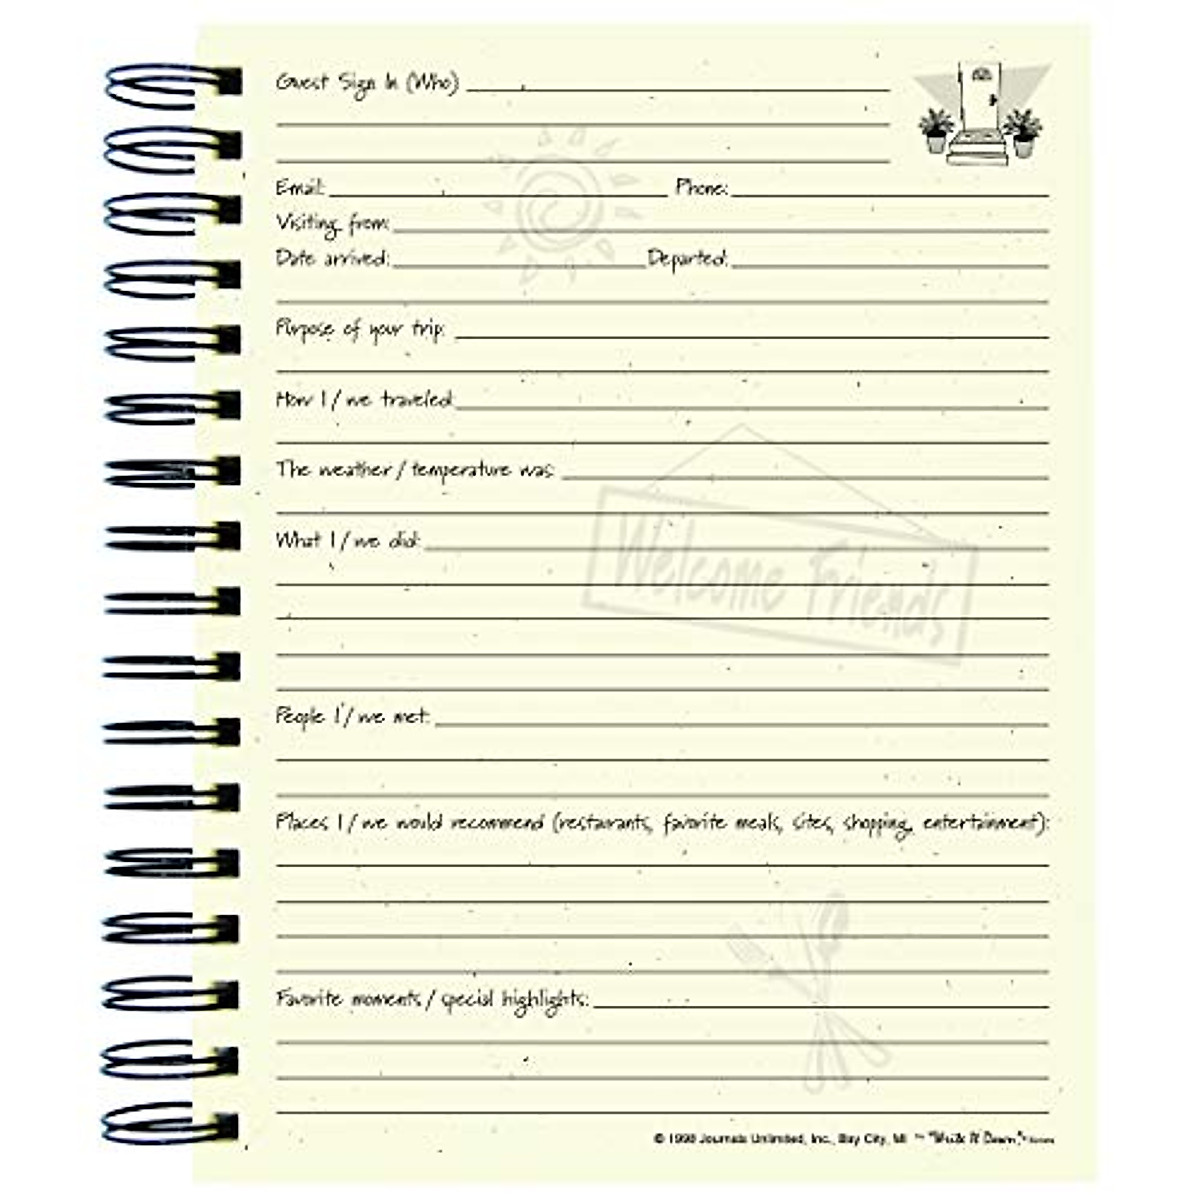 Guest Sign In (Who)
Email: Phone:
Visiting from:
Date arrived: Departed:
Purpose of your trip:
How I / we traveled:
The weather / temperature was:
Welcome Friends
What I / we did:
People I / we met:
Places I / we would recommend (restaurants, favorite meals, sites, shopping, entertainment):
Favorite moments / special highlights:
© 1998 Journals Unlimited, Inc., Bay City, MI ~ "Write It Down!"